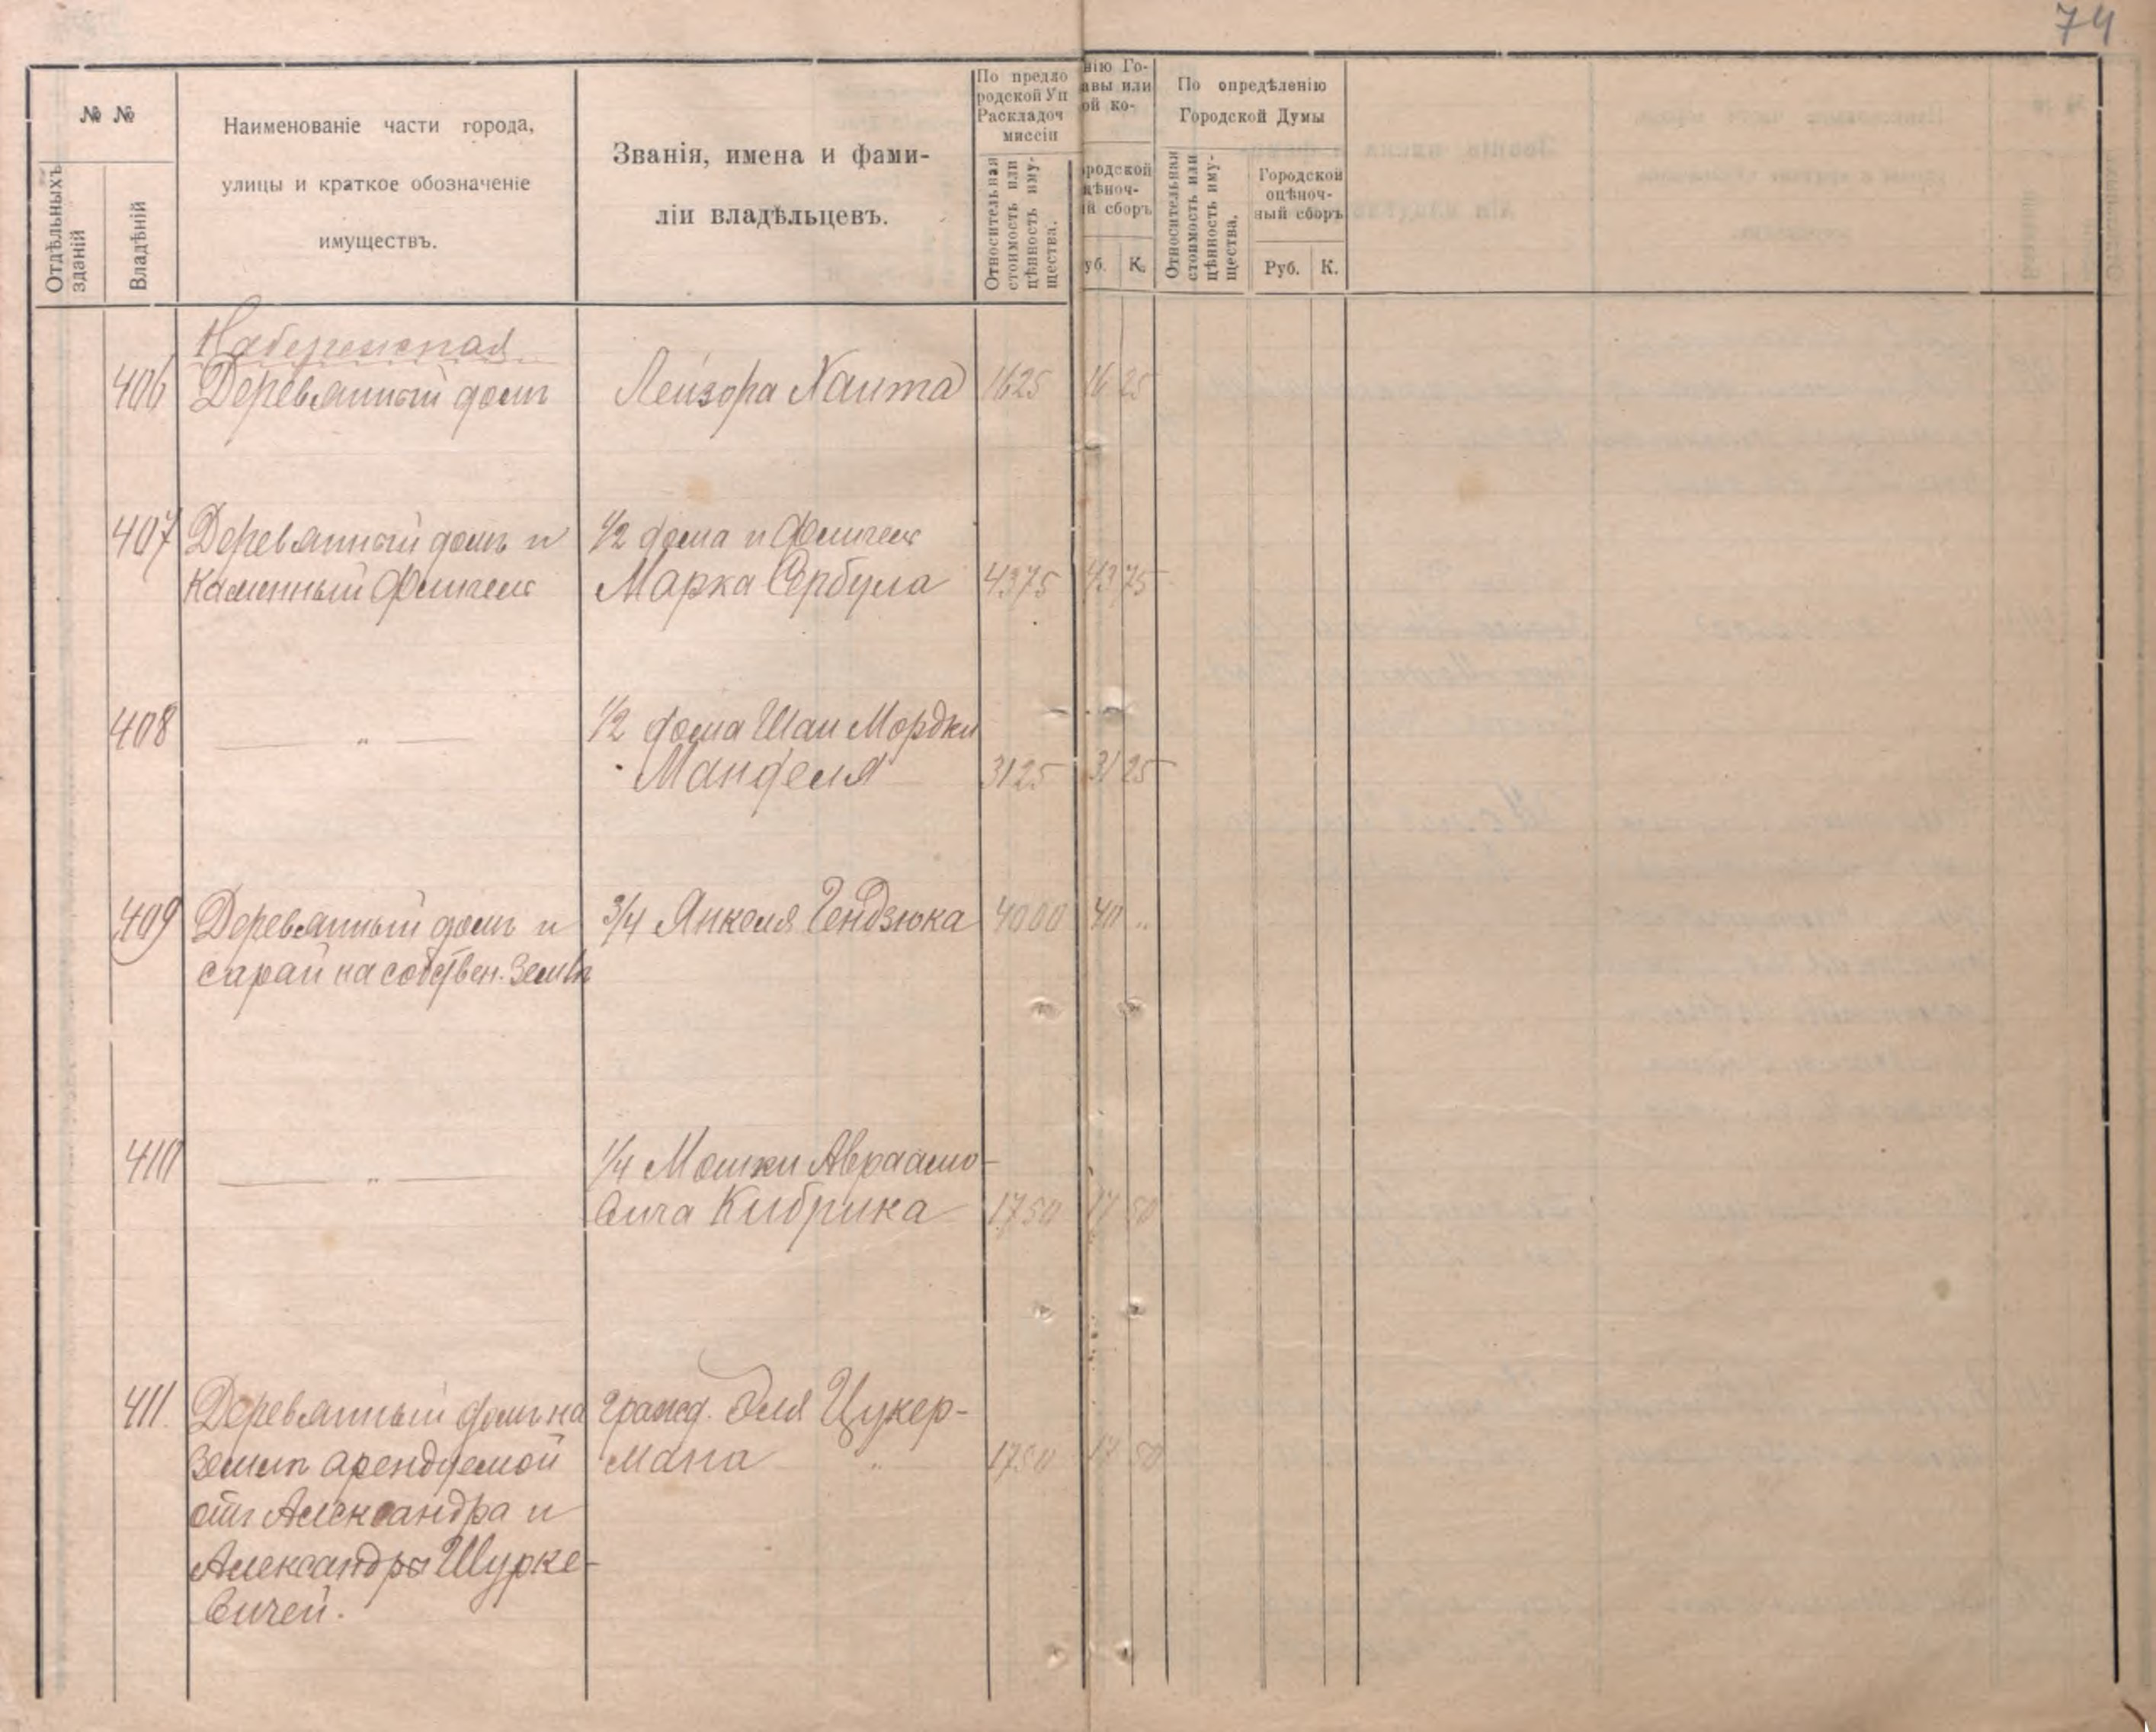 74
№ №
Отдѣльныхъ зданій
Владѣній
Наименованіе части города,
улицы и краткое обозначеніе
имуществъ.
Званія, имена и фами-
ліи владѣльцевъ.
По предло
родской Уп
Раскладоч
миссіи
Относительная
стоимость или
цѣнность иму-
щества.
нію Го-
авы или
ой ко-
родской
цѣноч-
й сборъ
уб. К.
По опредѣленію
Городской Думы
Относительная
стоимость или
цѣнность иму-
щества.
Городской
оцѣноч-
ный сборъ
Руб. К.
Набережная
406 Деревянный домъ Лейзора Хаита 1625 16 25
407 Деревянный домъ и 1/2 дома и флигель
каменный флигель Марка Сербула 4375 43 75
408 — „ — 1/2 дома Шаи Мордки
Манделя 3125 31 25
409 Деревянный домъ и 3/4 Янкеля Гендзюка 4000 40 „
сарай на собствен. землѣ
410 — „ — 1/4 Мошки Авраамо-
вича Кибрика 1750 17 50
411. Деревянный домъ на гражд. Эля Цукер-
землѣ арендуемой мана „ 1750 17 50
отъ Александра и
Александры Шурке-
вичей.